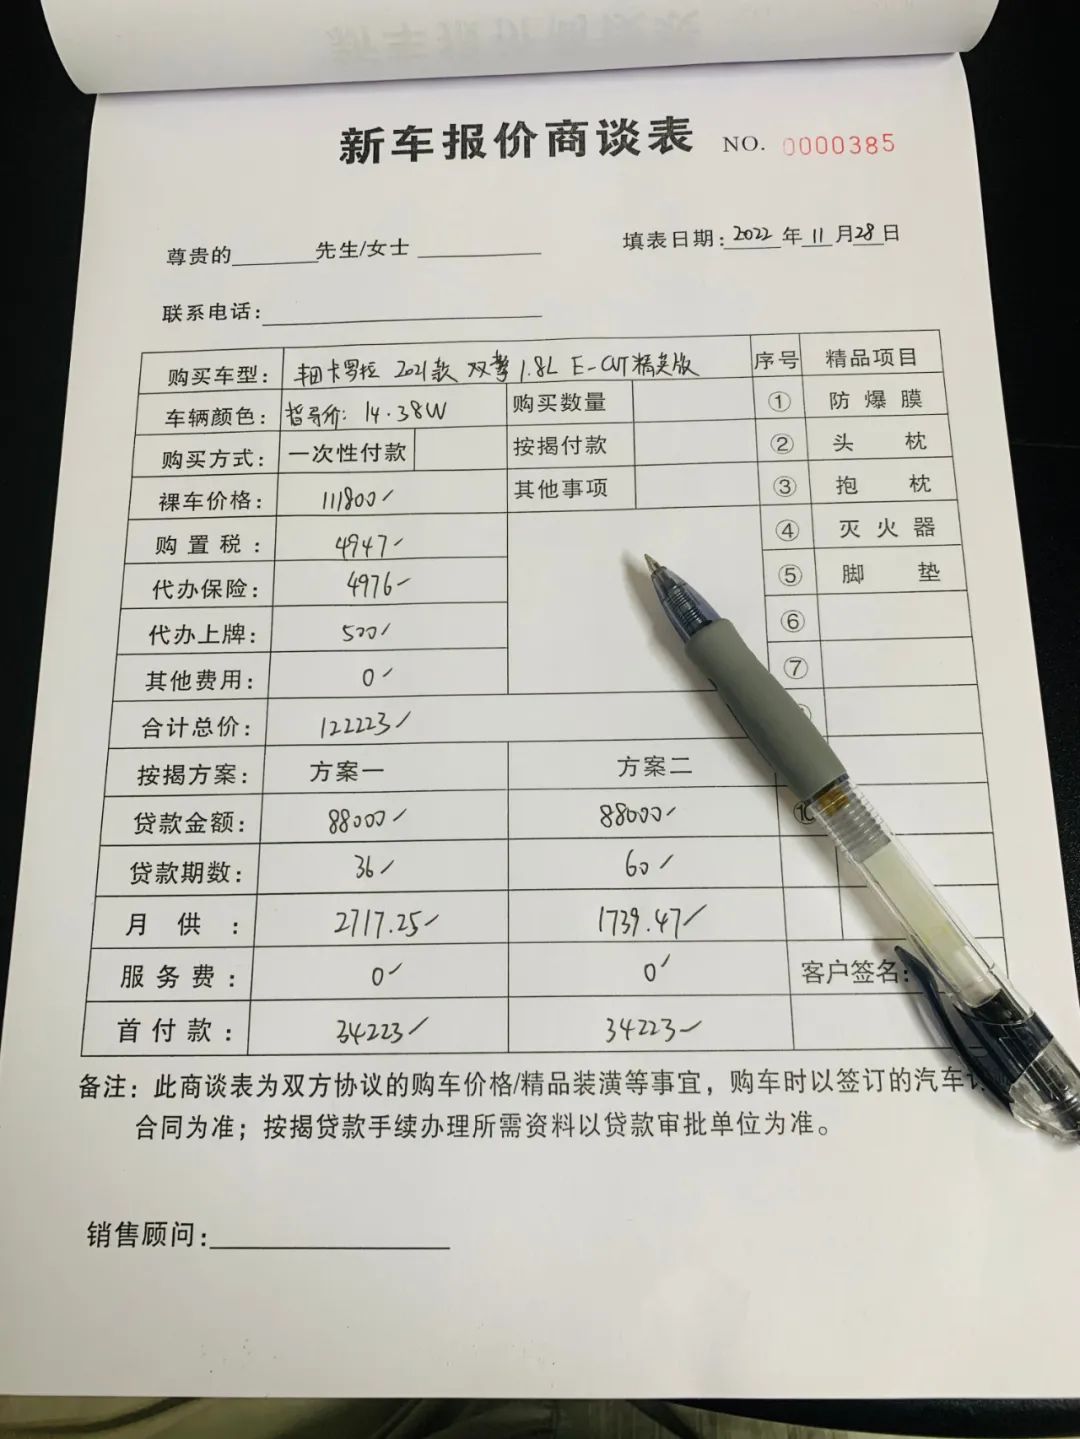 新车报价商谈表 NO. 0000385
尊贵的 先生/女士
填表日期: 2022 年 11 月 28 日
联系电话:
购买车型: 丰田卡罗拉 2021款 双擎 1.8L E-CVT精英版 序号 精品项目
车辆颜色: 指导价: 14.38W 购买数量 ① 防爆膜
购买方式: 一次性付款 按揭付款 ② 头枕
裸车价格: 111800 其他事项 ③ 抱枕
购置税: 4947 ④ 灭火器
代办保险: 4976 ⑤ 脚垫
代办上牌: 500 ⑥
其他费用: 0 ⑦
合计总价: 122223
按揭方案: 方案一 方案二
贷款金额: 88000 88000 ⑩
贷款期数: 36 60
月供: 2717.25 1739.47
服务费: 0 0 客户签名:
首付款: 34223 34223
备注: 此商谈表为双方协议的购车价格/精品装潢等事宜，购车时以签订的汽车
合同为准；按揭贷款手续办理所需资料以贷款审批单位为准。
销售顾问: